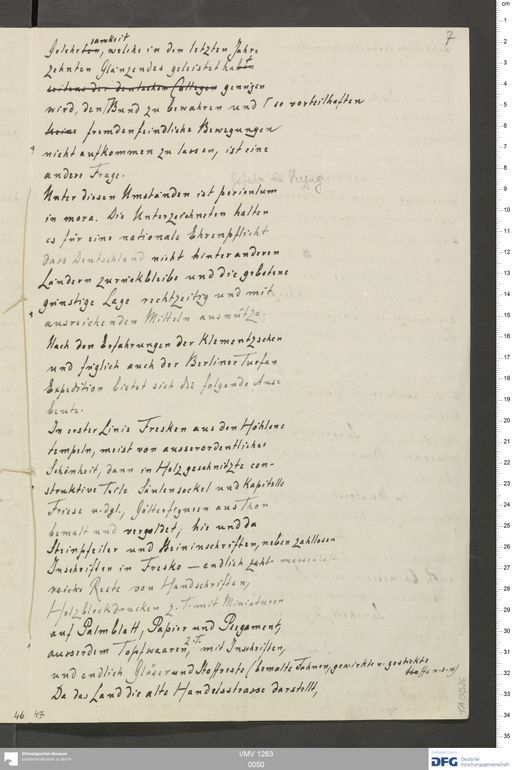 7
Gelehrten samkeit, welche in den letzten Jahr-
zehnten Glänzendes geleistet hat
seitens der deutschen Collegen genügen
wird, den Bund zu bewahren und so vorteilhaften
keine fremdenfeindliche Bewegungen
nicht aufkommen zu lassen, ist eine
andere Frage.
Gefahr im Verzug
Unter diesen Umständen ist periculum
in mora. Die Unterzeichneten halten
es für eine nationale Ehrenpflicht
dass Deutschland nicht hinter anderen
Ländern zurückbleibe und die gebotene
günstige Lage rechtzeitig und mit
ausreichenden Mitteln ausnütze.
Nach den Erfahrungen der Klementzschen
und füglich auch der Berliner Turfan
Expedition bietet sich die folgende Aus-
beute.
In erster Linie Fresken aus den Höhlen-
tempeln, meist von ausserordentlicher
Schönheit, dann in Holz geschnitzte con-
struktive Teile Säulensockel und Kapitelle
Friese u. dgl., Götterfiguren aus Thon
bemalt und vergoldet; hie und da
Steinpfeiler und Steininschriften, neben zahllosen
Inschriften in Fresko — endlich zahl-
reiche Reste von Handschriften,
Holzblockdrucken z. T. mit Miniaturen
auf Palmblatt, Papier und Pergament,
ausserdem Topfwaaren, z. T. mit Inschriften,
und endlich Gläser und Stoffreste (bemalte Fahnen, gewirkte u. gestickte
Stoffe u.s.w)
Da das Land die alte Handelsstrasse darstellt,
46 47
Ethnologisches Museum
Staatliche Museen zu Berlin
I/MV 1263
0050
Gefördert durch
DFG Deutsche
Forschungsgemeinschaft